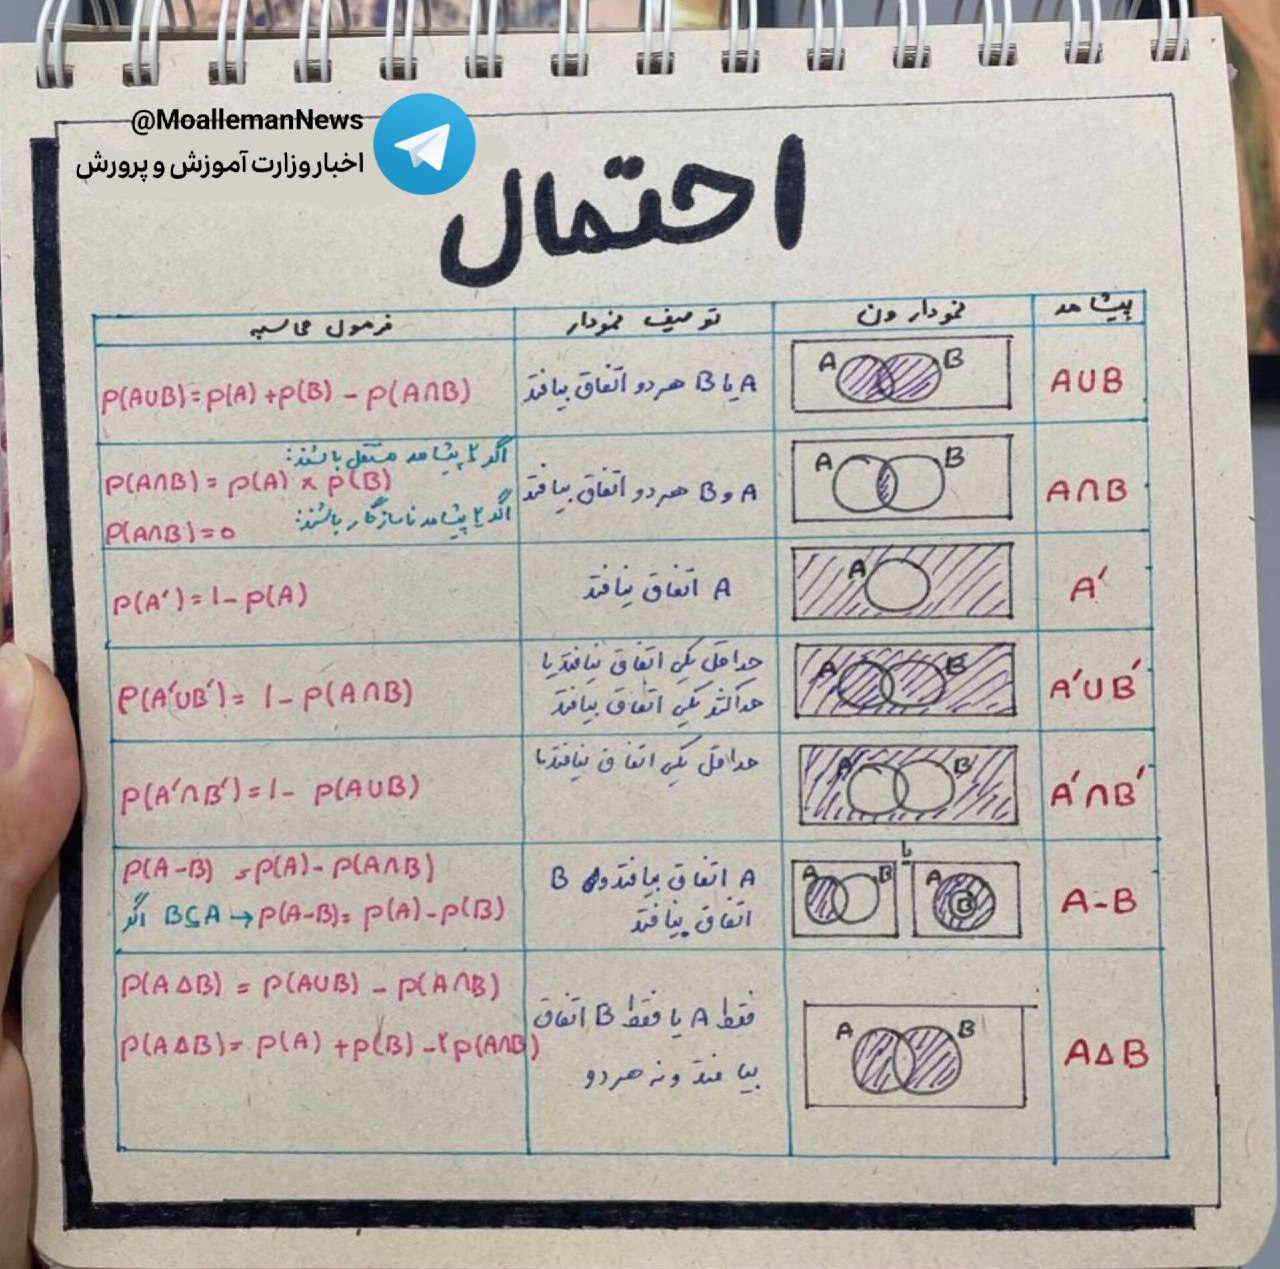 @MoallemanNews
اخبار وزارت آموزش و پرورش
احتمال
پیشامد
نمودار ون
توصیف نمودار
فرمول محاسبه
A∪B
A B
A یا B هر دو اتفاق بیافتد
P(A∪B)=P(A)+P(B)-P(A∩B)
A∩B
A B
A و B هر دو اتفاق بیافتد
اگر ۲ پیشامد مستقل باشند:
P(A∩B)=P(A)×P(B)
اگر ۲ پیشامد ناسازگار باشند:
P(A∩B)=0
A′
A
A اتفاق نیافتد
P(A′)=1-P(A)
A′∪B′
A B
حداقل یکی اتفاق نیافتد یا
حداکثر یکی اتفاق بیافتد
P(A′∪B′)=1-P(A∩B)
A′∩B′
A B
حداقل یکی اتفاق نیافتد یا
P(A′∩B′)=1-P(A∪B)
A-B
A B یا A B
A اتفاق بیافتد و B
اتفاق نیافتد
P(A-B)=P(A)-P(A∩B)
اگر B⊆A → P(A-B)=P(A)-P(B)
A△B
A B
فقط A یا فقط B اتفاق
بیافتد و نه هر دو
P(A△B)=P(A∪B)-P(A∩B)
P(A△B)=P(A)+P(B)-۲P(A∩B)